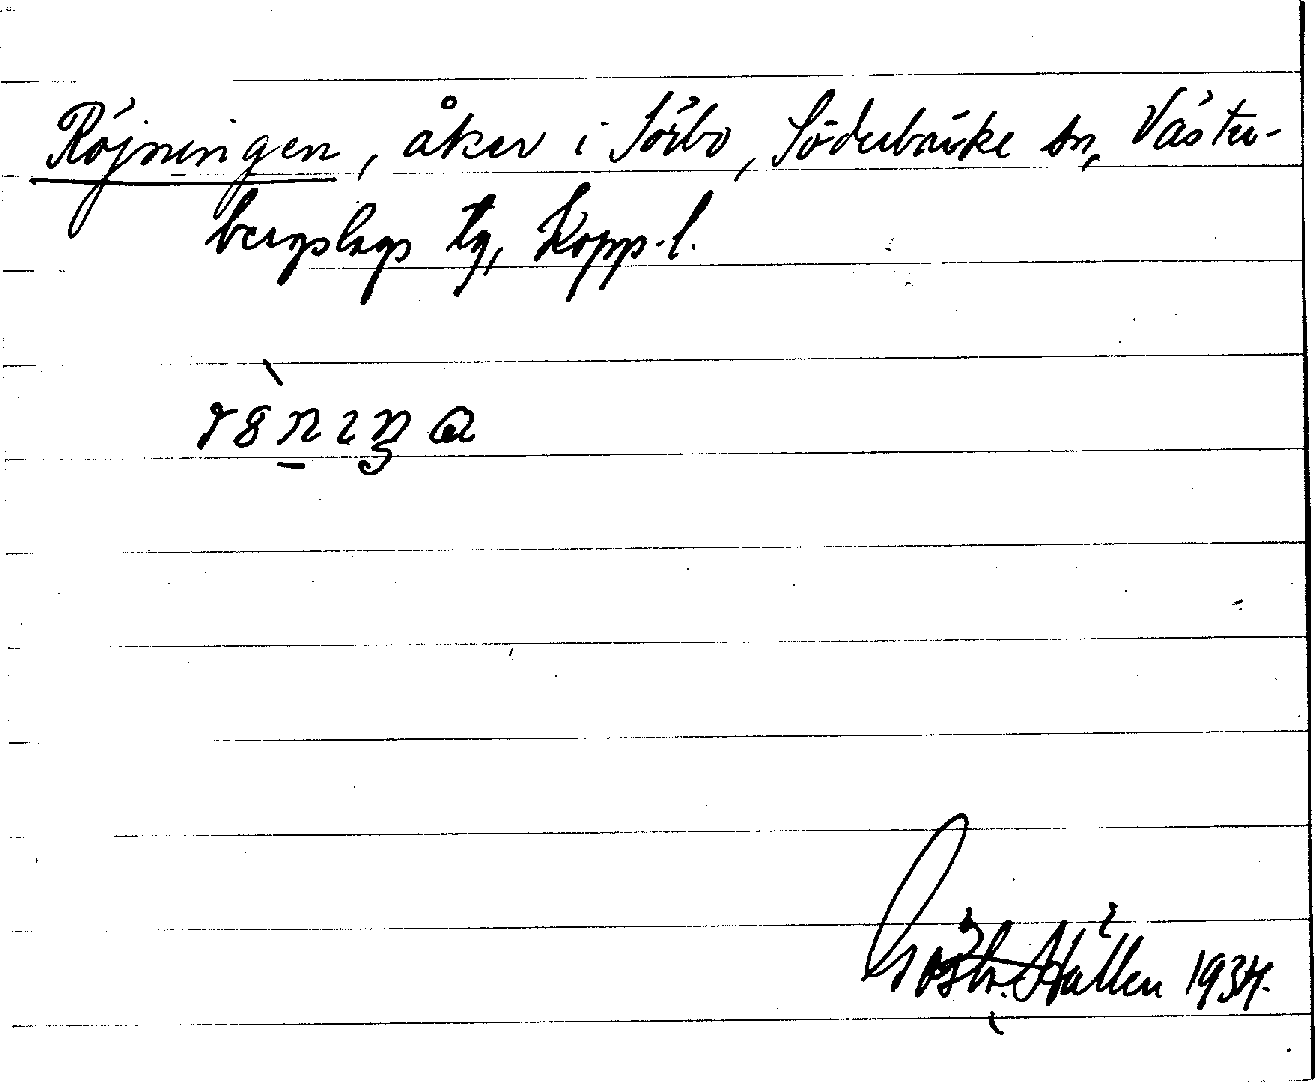 Röjningen, åker i Sörbo, Söderbärke sn, Väster-
bergslags tg, Kopp. l.
Gösta Hållen 1934.